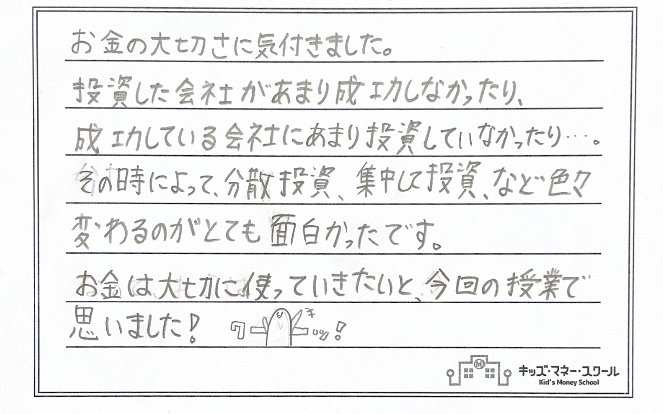 お金の大切さに気付きました。
投資した会社があまり成功しなかったり、
成功している会社にあまり投資していなかったり…。
その時によって、分散投資、集中して投資、など色々
変わるのがとても面白かったです。
お金は大切に使っていきたいと、今回の授業で
思いました!
キッズ・マネー・スクール
Kid's Money School